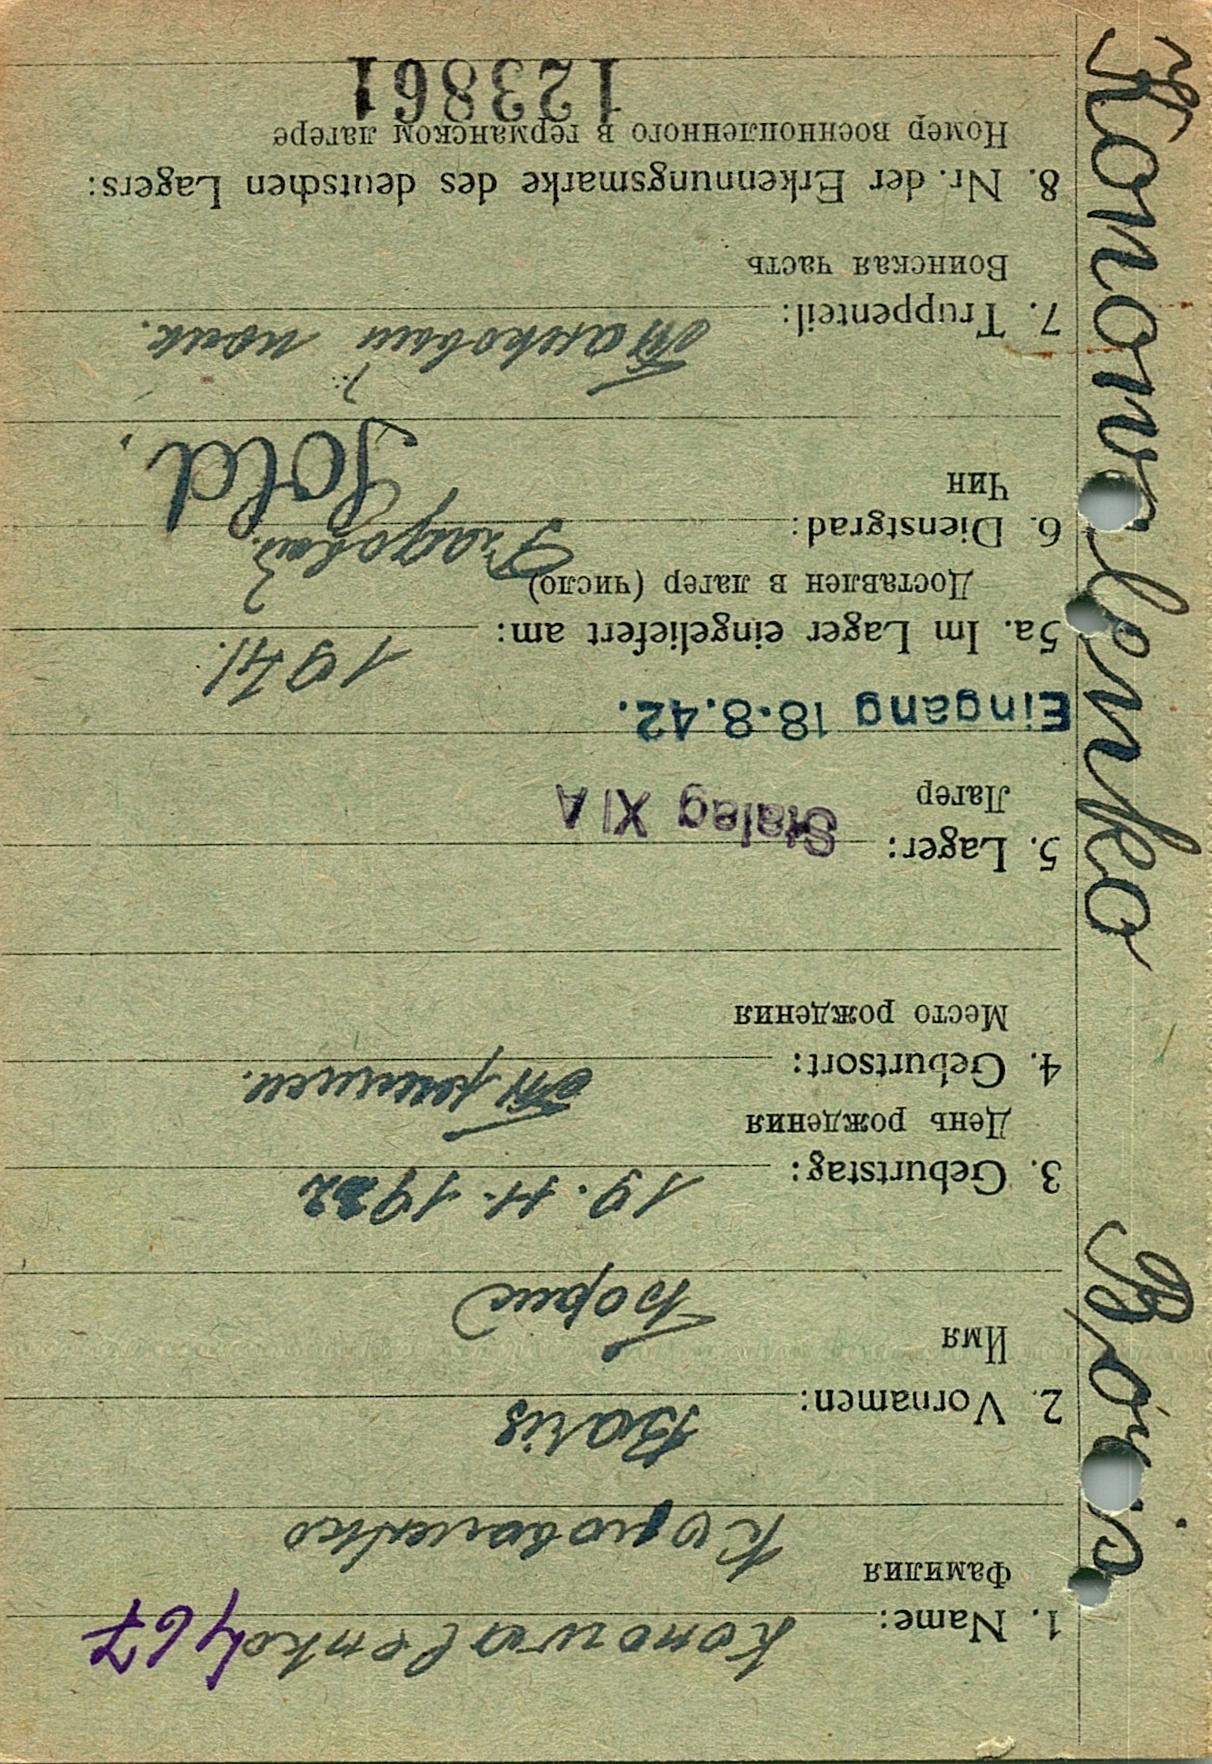 Konowalenko
Boris
467
1. Name: Konowalenko
Фамилия
Коноваленко
2. Vornamen: Boris
Имя
Борис
3. Geburtstag: 19. 11. 1922
День рождения
4. Geburtsort:
Место рождения
5. Lager: Stalag XI A
Лагер
Eingang 18.8.42.
5a. Im Lager eingeliefert am: 1941.
Доставлен в лагер (число)
6. Dienstgrad: Рядовой. Sold.
Чин
7. Truppenteil: Танковый полк.
Воинская часть
8. Nr. der Erkennungsmarke des deutschen Lagers:
Номер военнопленного в германском лагере
123861